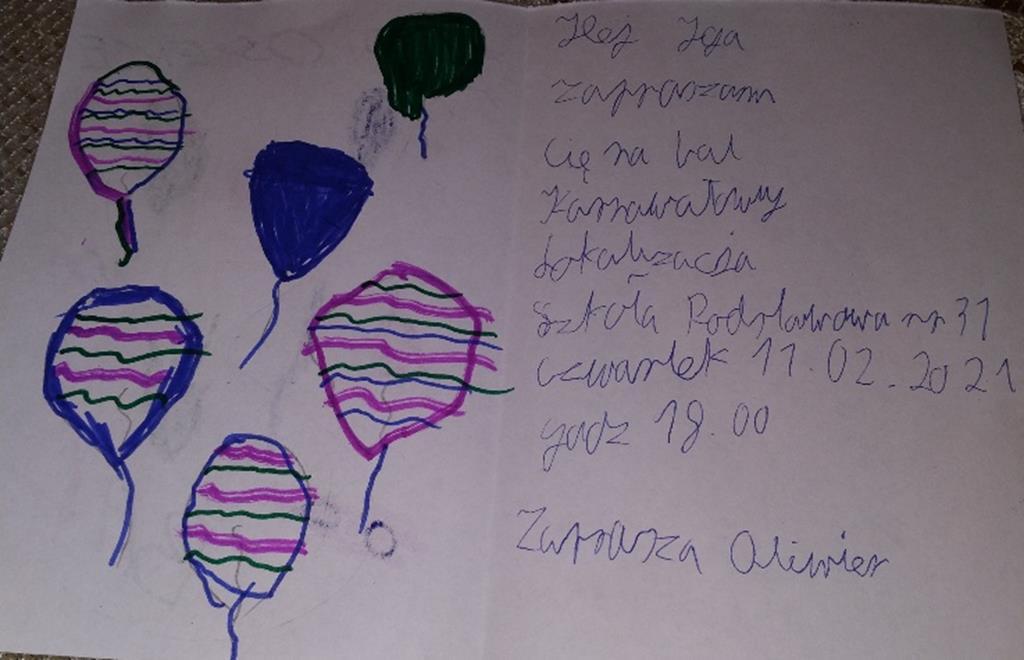 Hej Iga
zapraszam
cię na bal
Karnawałowy
Lokalizacja
Szkoła Podstawowa nr 31
czwartek 11.02.2021
godz 18.00
Zaprasza Oliwier